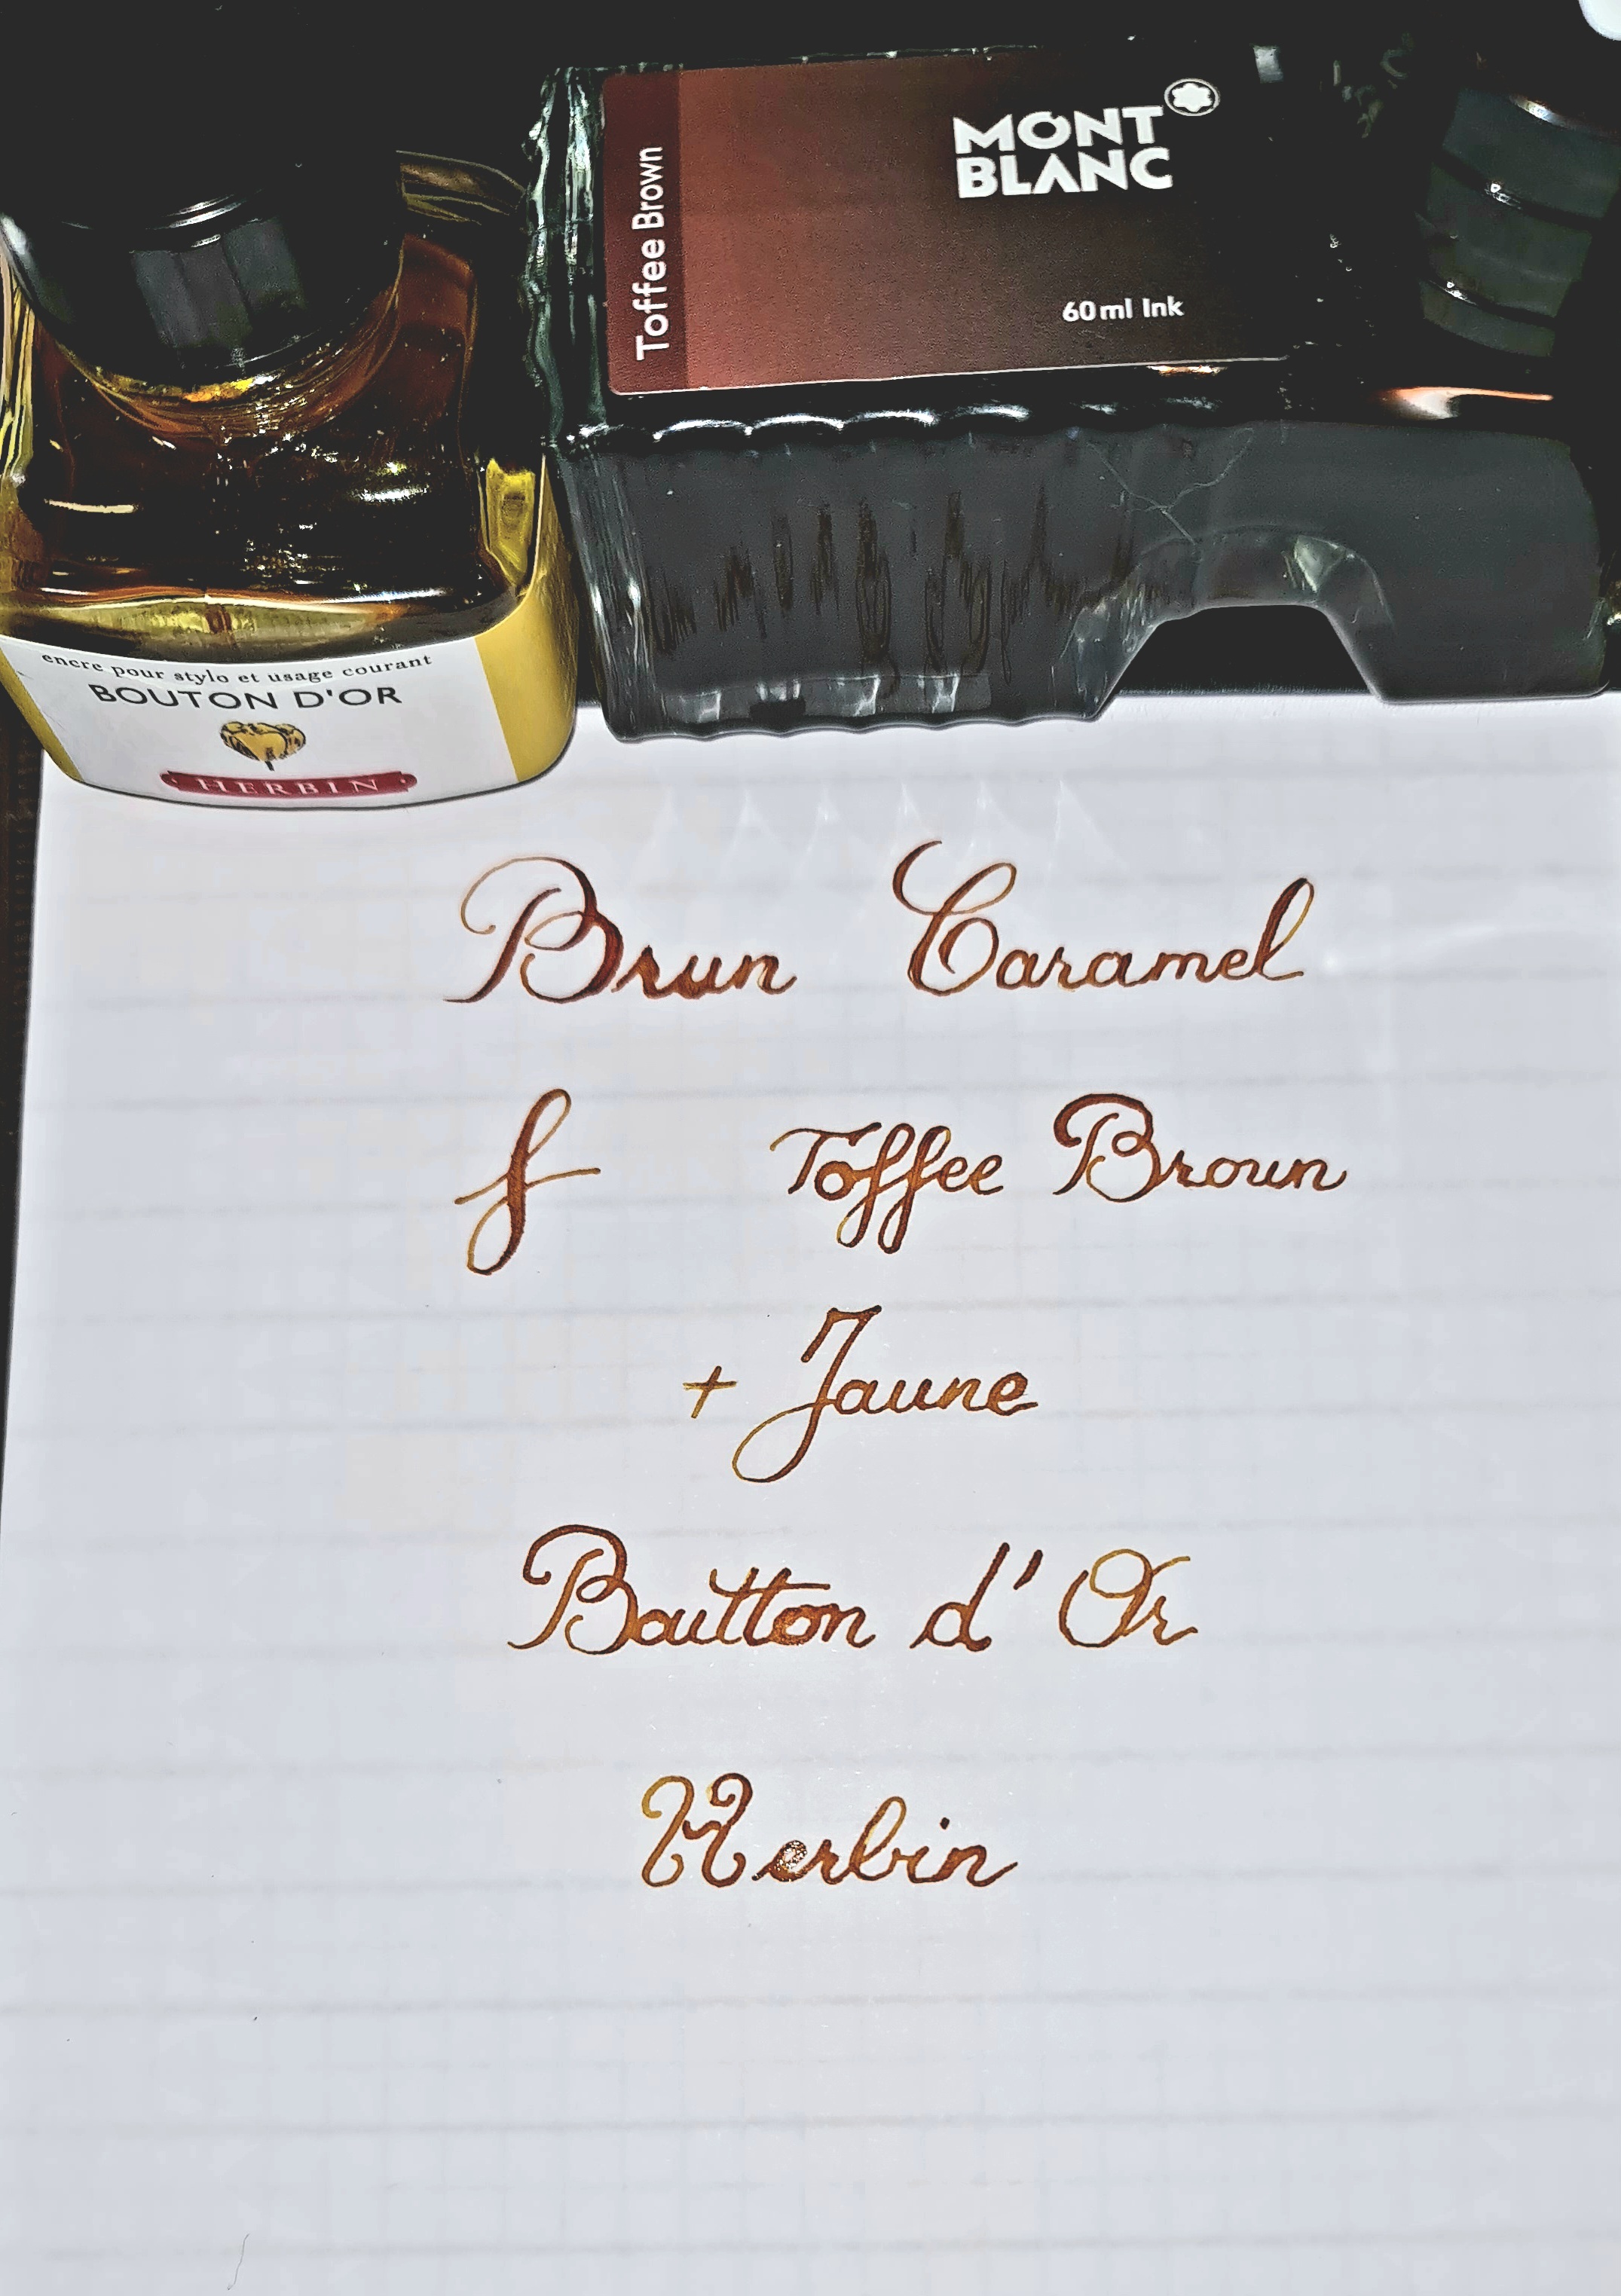 MONT
BLANC
Toffee Brown
60 ml Ink
encre pour stylo et usage courant
BOUTON D'OR
HERBIN
Brun Caramel
f Toffee Brown
+ Jaune
Boutton d'Or
Herbin